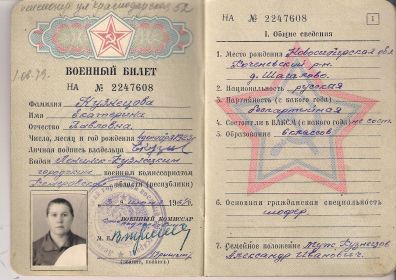 пенсионер ул Краснодарская 52
1.08.79.
ВОЕННЫЙ БИЛЕТ
НА № 2247608
Фамилия Кузнецова
Имя Екатерина
Отчество Павловна
Число, месяц и год рождения
Личная подпись владельца
Выдан Ленинск-Кузнецким
городским военным комиссариатом
Кемеровской области (республики)
ВОЕННЫЙ КОМИССАР
М. П.
(звание, подпись)
НА № 2247608
1
I. Общие сведения
1. Место рождения Новосибирская обл
р-он
д.
2. Национальность русская
3. Партийность (с какого года)
беспартийная
4. Состоит ли в ВЛКСМ (с какого года) не сост
5. Образование 6 классов
6. Основная гражданская специальность
шофер
7. Семейное положение муж Кузнецов
Александр Иванович.